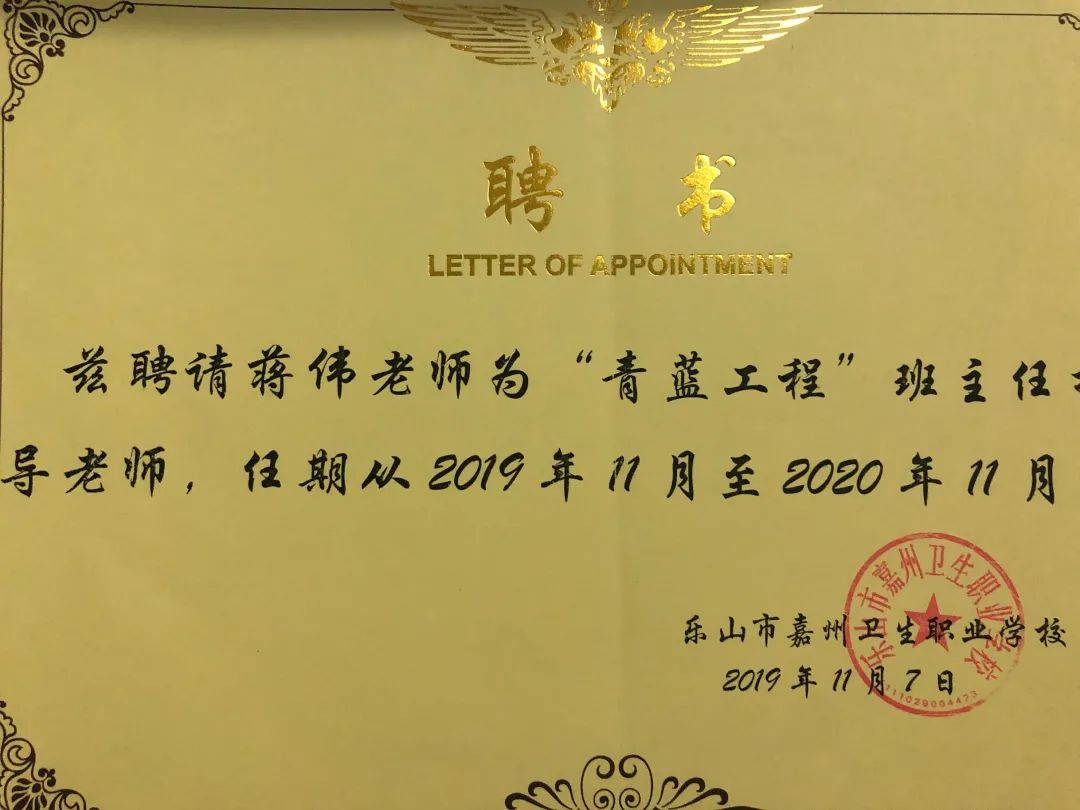 聘 书
LETTER OF APPOINTMENT
兹聘请蒋伟老师为“青蓝工程”班主任
导老师，任期从2019年11月至2020年11月
乐山市嘉州卫生职业学校
2019年11月7日
乐山市嘉州卫生职业学校